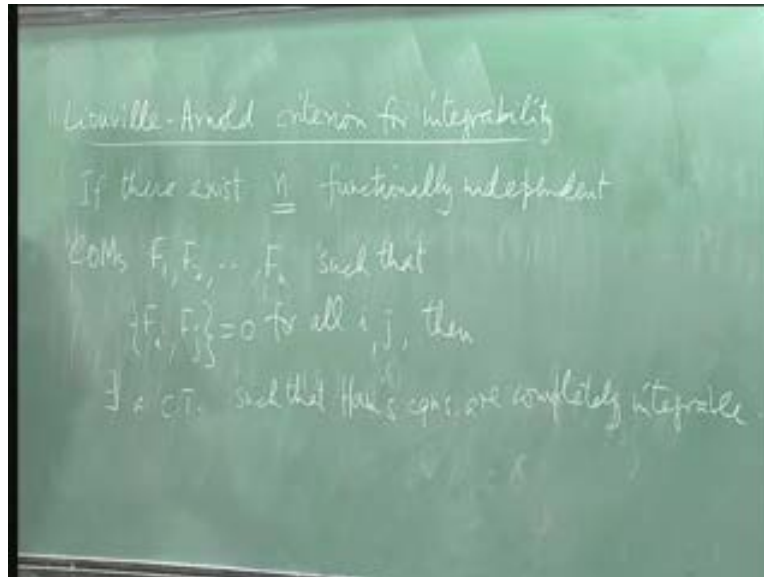 Liouville-Arnold criterion for integrability
If there exist n functionally independent
COMs F₁, F₂, ..., Fₙ such that
{Fᵢ, Fⱼ} = 0 for all i, j, then
∃ a CT. such that Ham's eqns. are completely integrable.